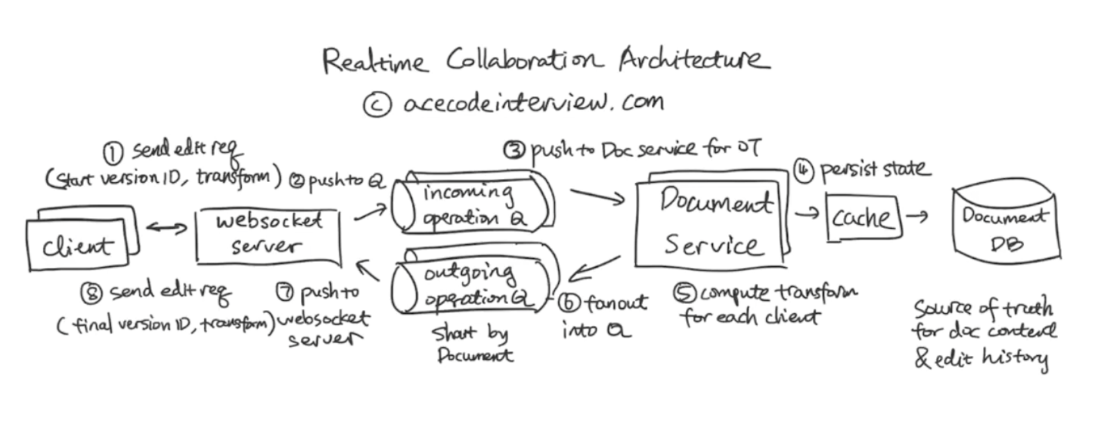 Realtime Collaboration Architecture
© acecodeinterview.com
① send edit req
(start version ID, transform)
② push to Q
③ push to Doc service for OT
④ persist state
client
websocket
server
incoming
operation Q
outgoing
operation Q
Document
Service
cache
Document
DB
⑧ send edit req
(final version ID, transform)
⑦ push to
websocket
server
⑥ fanout
into Q
⑤ compute transform
for each client
by
Document
Source of truth
for doc content
& edit history